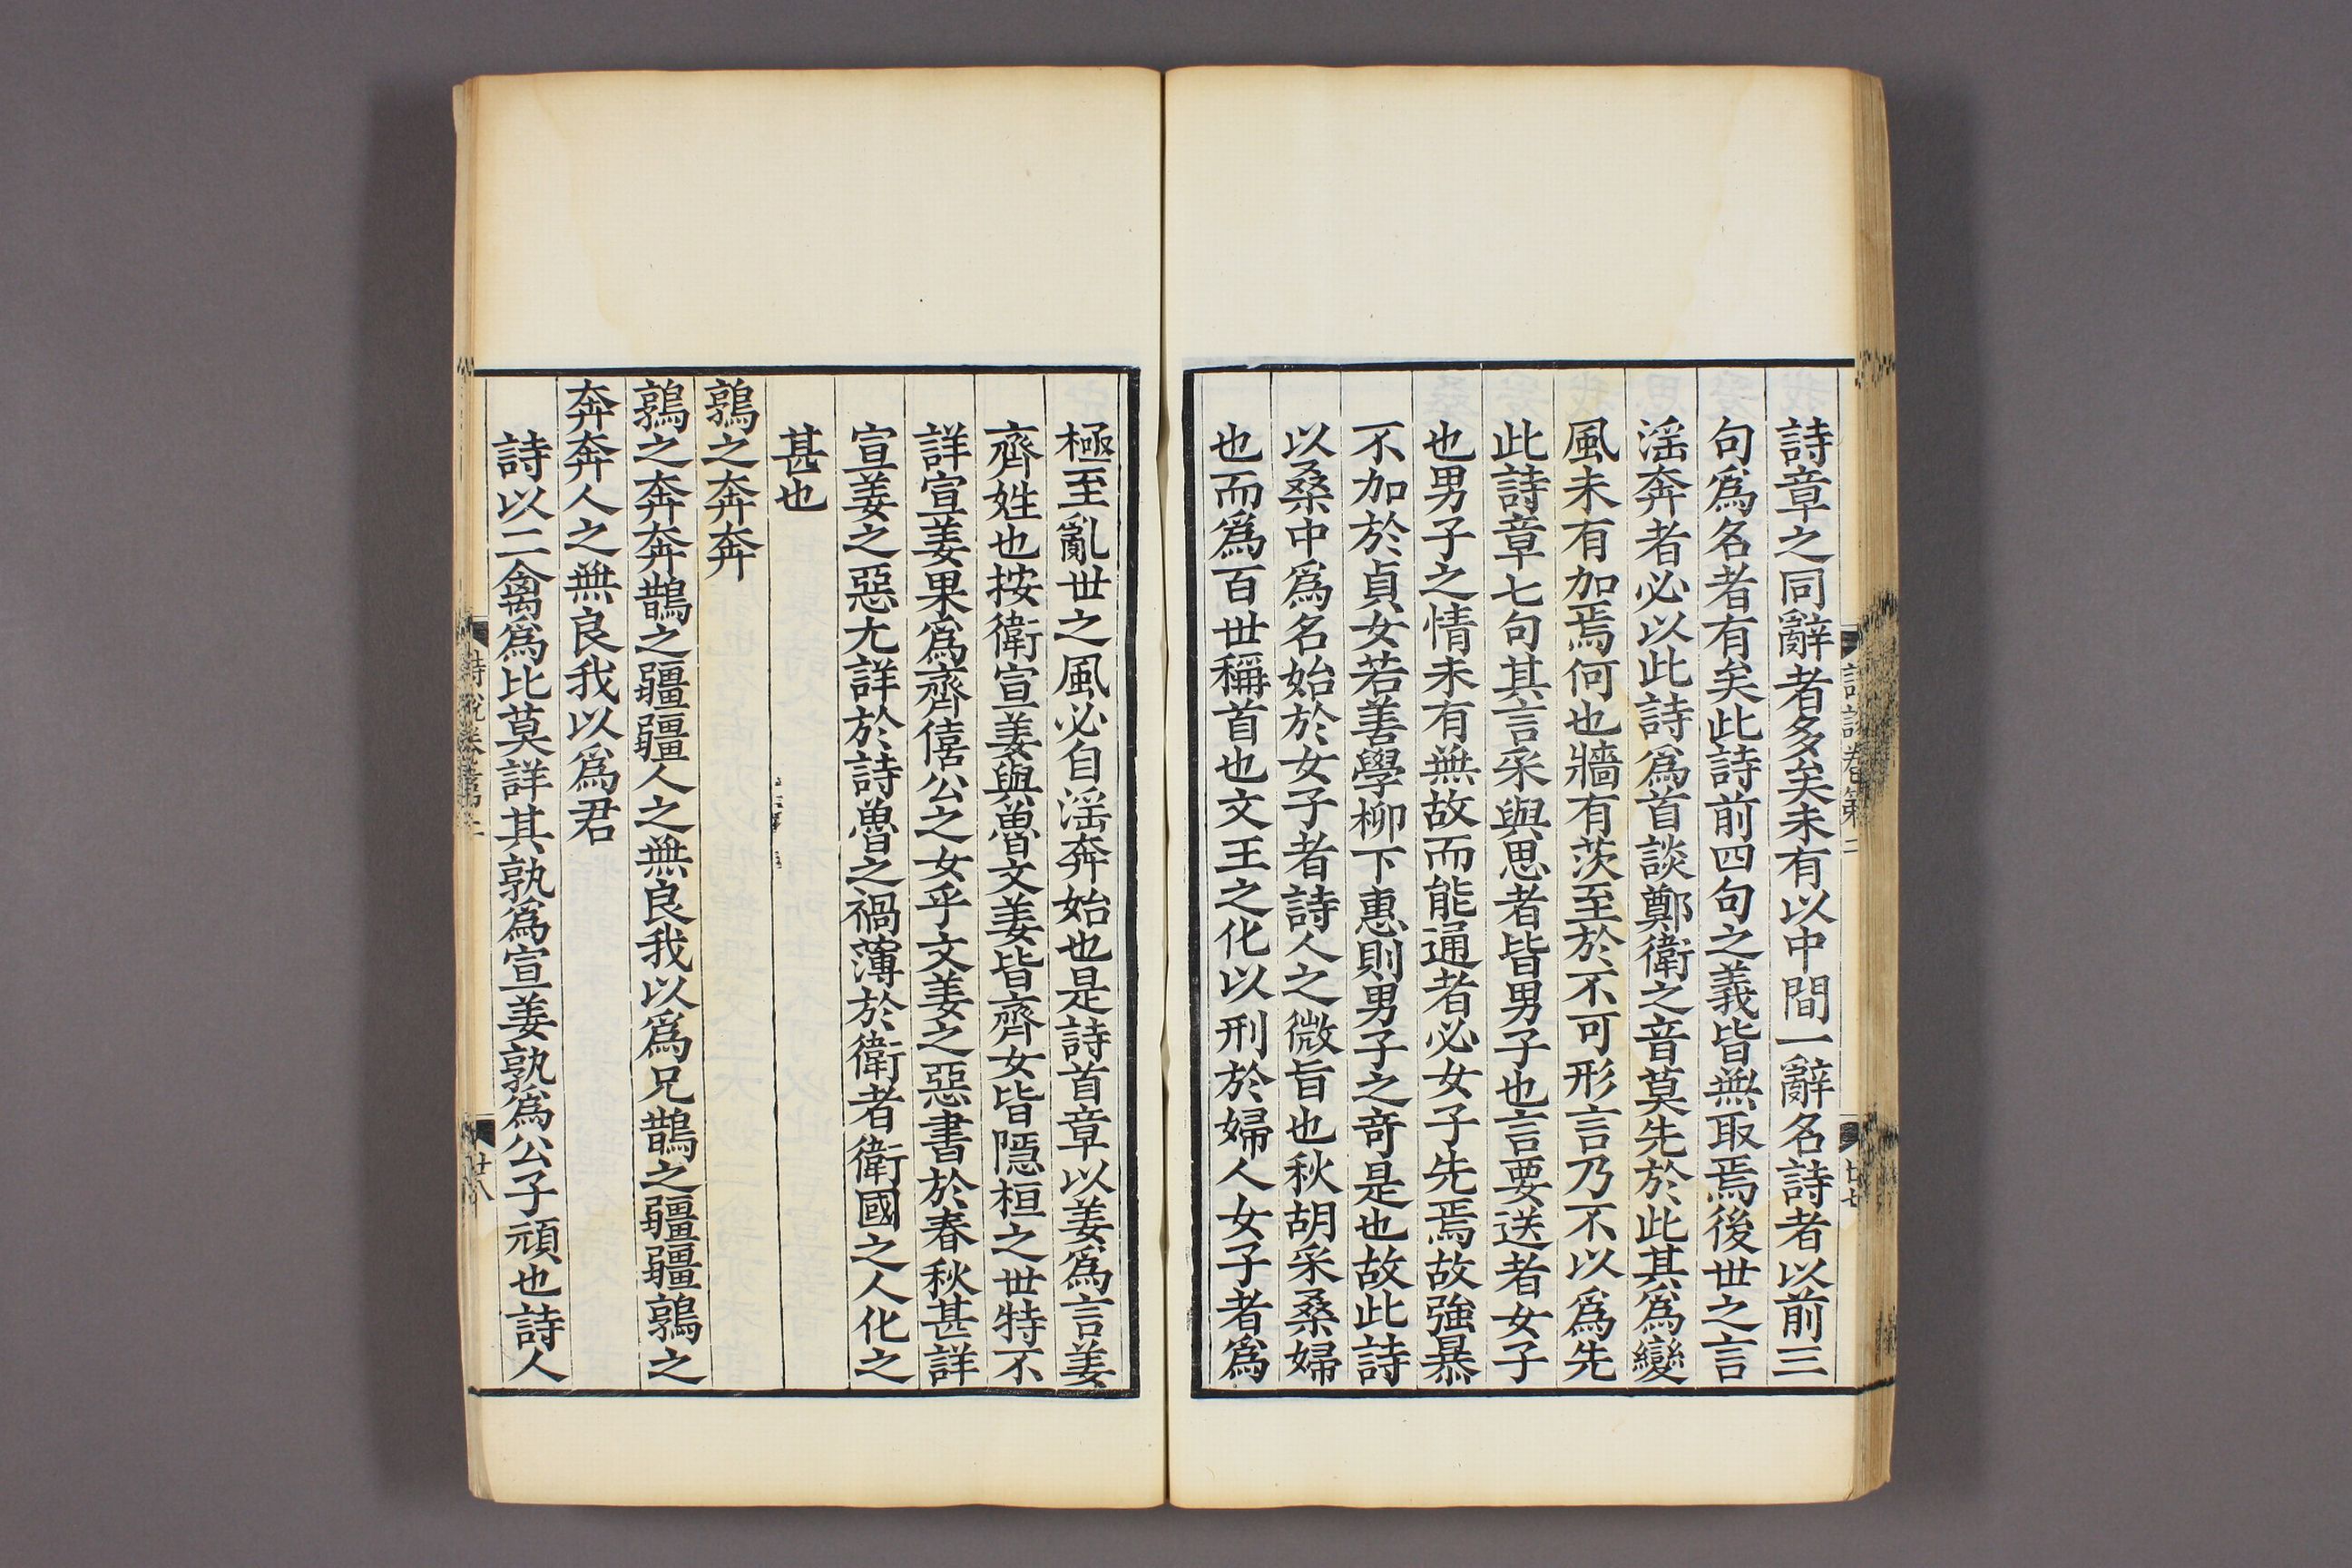 詩章之同辭者多矣未有以中間一辭名詩者以前三
句爲名者有矣此詩前四句之義皆無取焉後世之言
淫奔者必以此詩爲首談鄭衛之音莫先於此其爲變
風未有加焉何也牆有茨至於不可形言乃不以爲先
此詩章七句其言采與思者皆男子也言要送者女子
也男子之情未有無故而能通者必女子先焉故強暴
不加於貞女若善學柳下惠則男子之奇是也故此詩
以桑中爲名始於女子者詩人之微旨也秋胡采桑婦
也而爲百世稱首也文王之化以刑於婦人女子者爲
詩說卷第二
廿七
極至亂世之風必自淫奔始也是詩首章以姜爲言姜
齊姓也按衛宣姜與魯文姜皆齊女皆隱桓之世特不
詳宣姜果爲齊僖公之女乎文姜之惡書於春秋甚詳
宣姜之惡尤詳於詩魯之禍薄於衛者衛國之人化之
甚也
鶉之奔奔
鶉之奔奔鵲之疆疆人之無良我以爲兄鵲之疆疆鶉之
奔奔人之無良我以爲君
詩以二禽爲比莫詳其孰爲宣姜孰爲公子頑也詩人
詩說卷第二
廿八